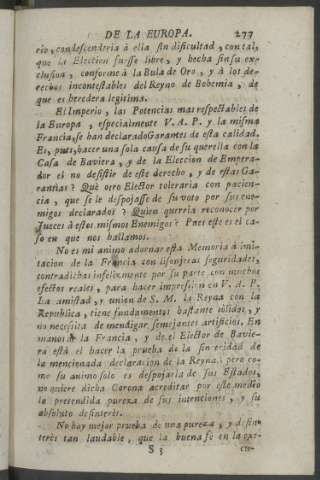 DE LA EUROPA. 277
rio, condescenderia à ella sin dificultad, con tal,
que la Eleccion fuesse libre, y hecha sin su ex-
clusion, conforme à la Bula de Oro, y à los de-
rechos incontestables del Reyno de Bohemia, de
que es heredera legitima.
El Imperio, las Potencias mas respetables de
la Europa, especialmente V. A. P. y la misma
Francia, se han declarado Garantes de esta calidad.
Es, pues, hacer una sola causa de su querella con la
Casa de Baviera, y de la Eleccion de Empera-
dor el no desistir de este derecho, y de estas Ga-
rantias? Què otro Elector toleraria con pacien-
cia, que se le despojasse de su voto por sus ene-
migos declarados? Quien querria reconocer por
Jueces à estos mismos Enemigos? Pues este es el ca-
so en que nos hallamos.
No es mi animo adornar esta Memoria à imi-
tacion de la Francia con lisonjeras seguridades,
contradichas infelizmente por su parte con muchos
efectos reales, para hacer impression en V. A. P.
La amistad, y union de S. M. la Reyna con la
Republica, tiene fundamentos bastante solidos, y
no necessita de mendigar semejantes artificios. En
manos de la Francia, y del Elector de Bavie-
ra està el hacer la prueba de la sinceridad de
la mencionada declaracion de la Reyna; pero co-
mo su animo solo es despojarla de sus Estados,
no quiere dicha Corona acreditar por este medio
la pretendida pureza de sus intenciones, y su
absoluto desinterès.
No hay mejor prueba de una pureza, y desin-
terès tan laudable, que la buena fe en la exe-
S 3 cu-